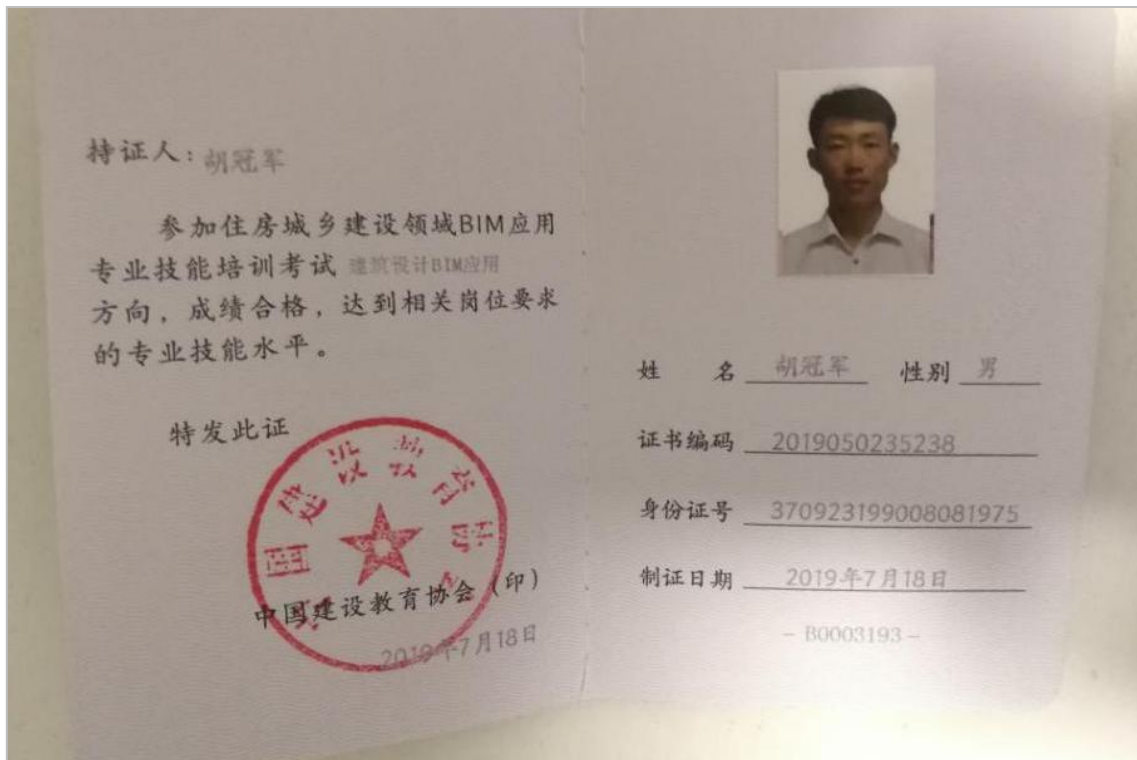 持证人：胡冠军
参加住房城乡建设领域BIM应用
专业技能培训考试 建筑设计BIM应用
方向，成绩合格，达到相关岗位要求
的专业技能水平。
特发此证
中国建设教育协会
中国建设教育协会（印）
2019年7月18日
姓 名 胡冠军 性别 男
证书编码 2019050235238
身份证号 370923199008081975
制证日期 2019年7月18日
- B0003193 -